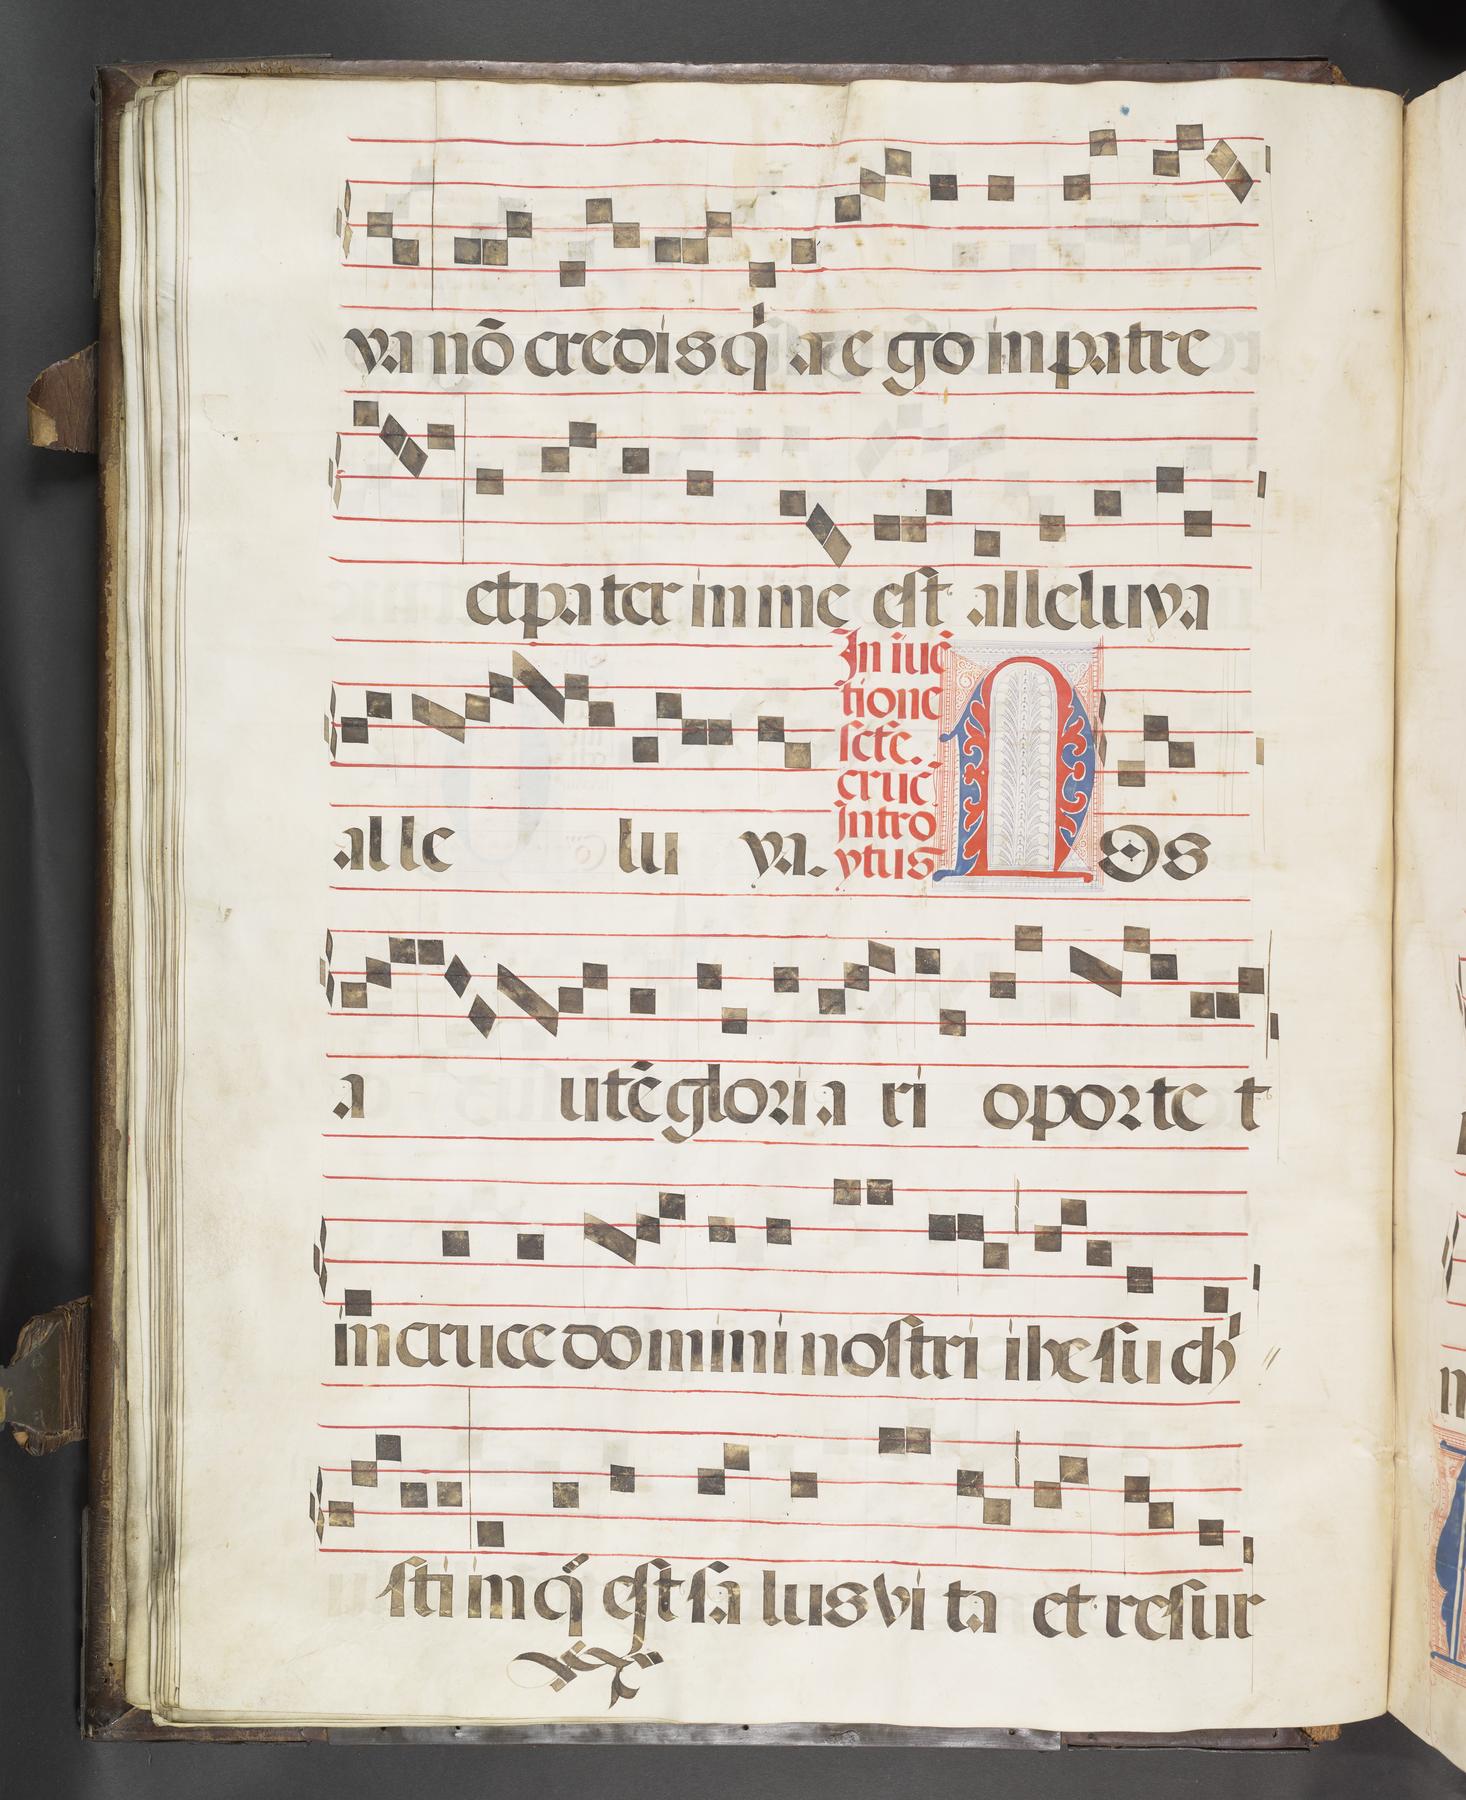 va nō credis q' a e go in patre
et pa ter in me est alleluva
In iuē
tione
scte.
cruc̄
Intro
ytus
alle lu va. N os
a utē gloria ri oporte t
in cruce domini nostri ihesu ch'
sti in q̄ est sa lus vi ta et resur